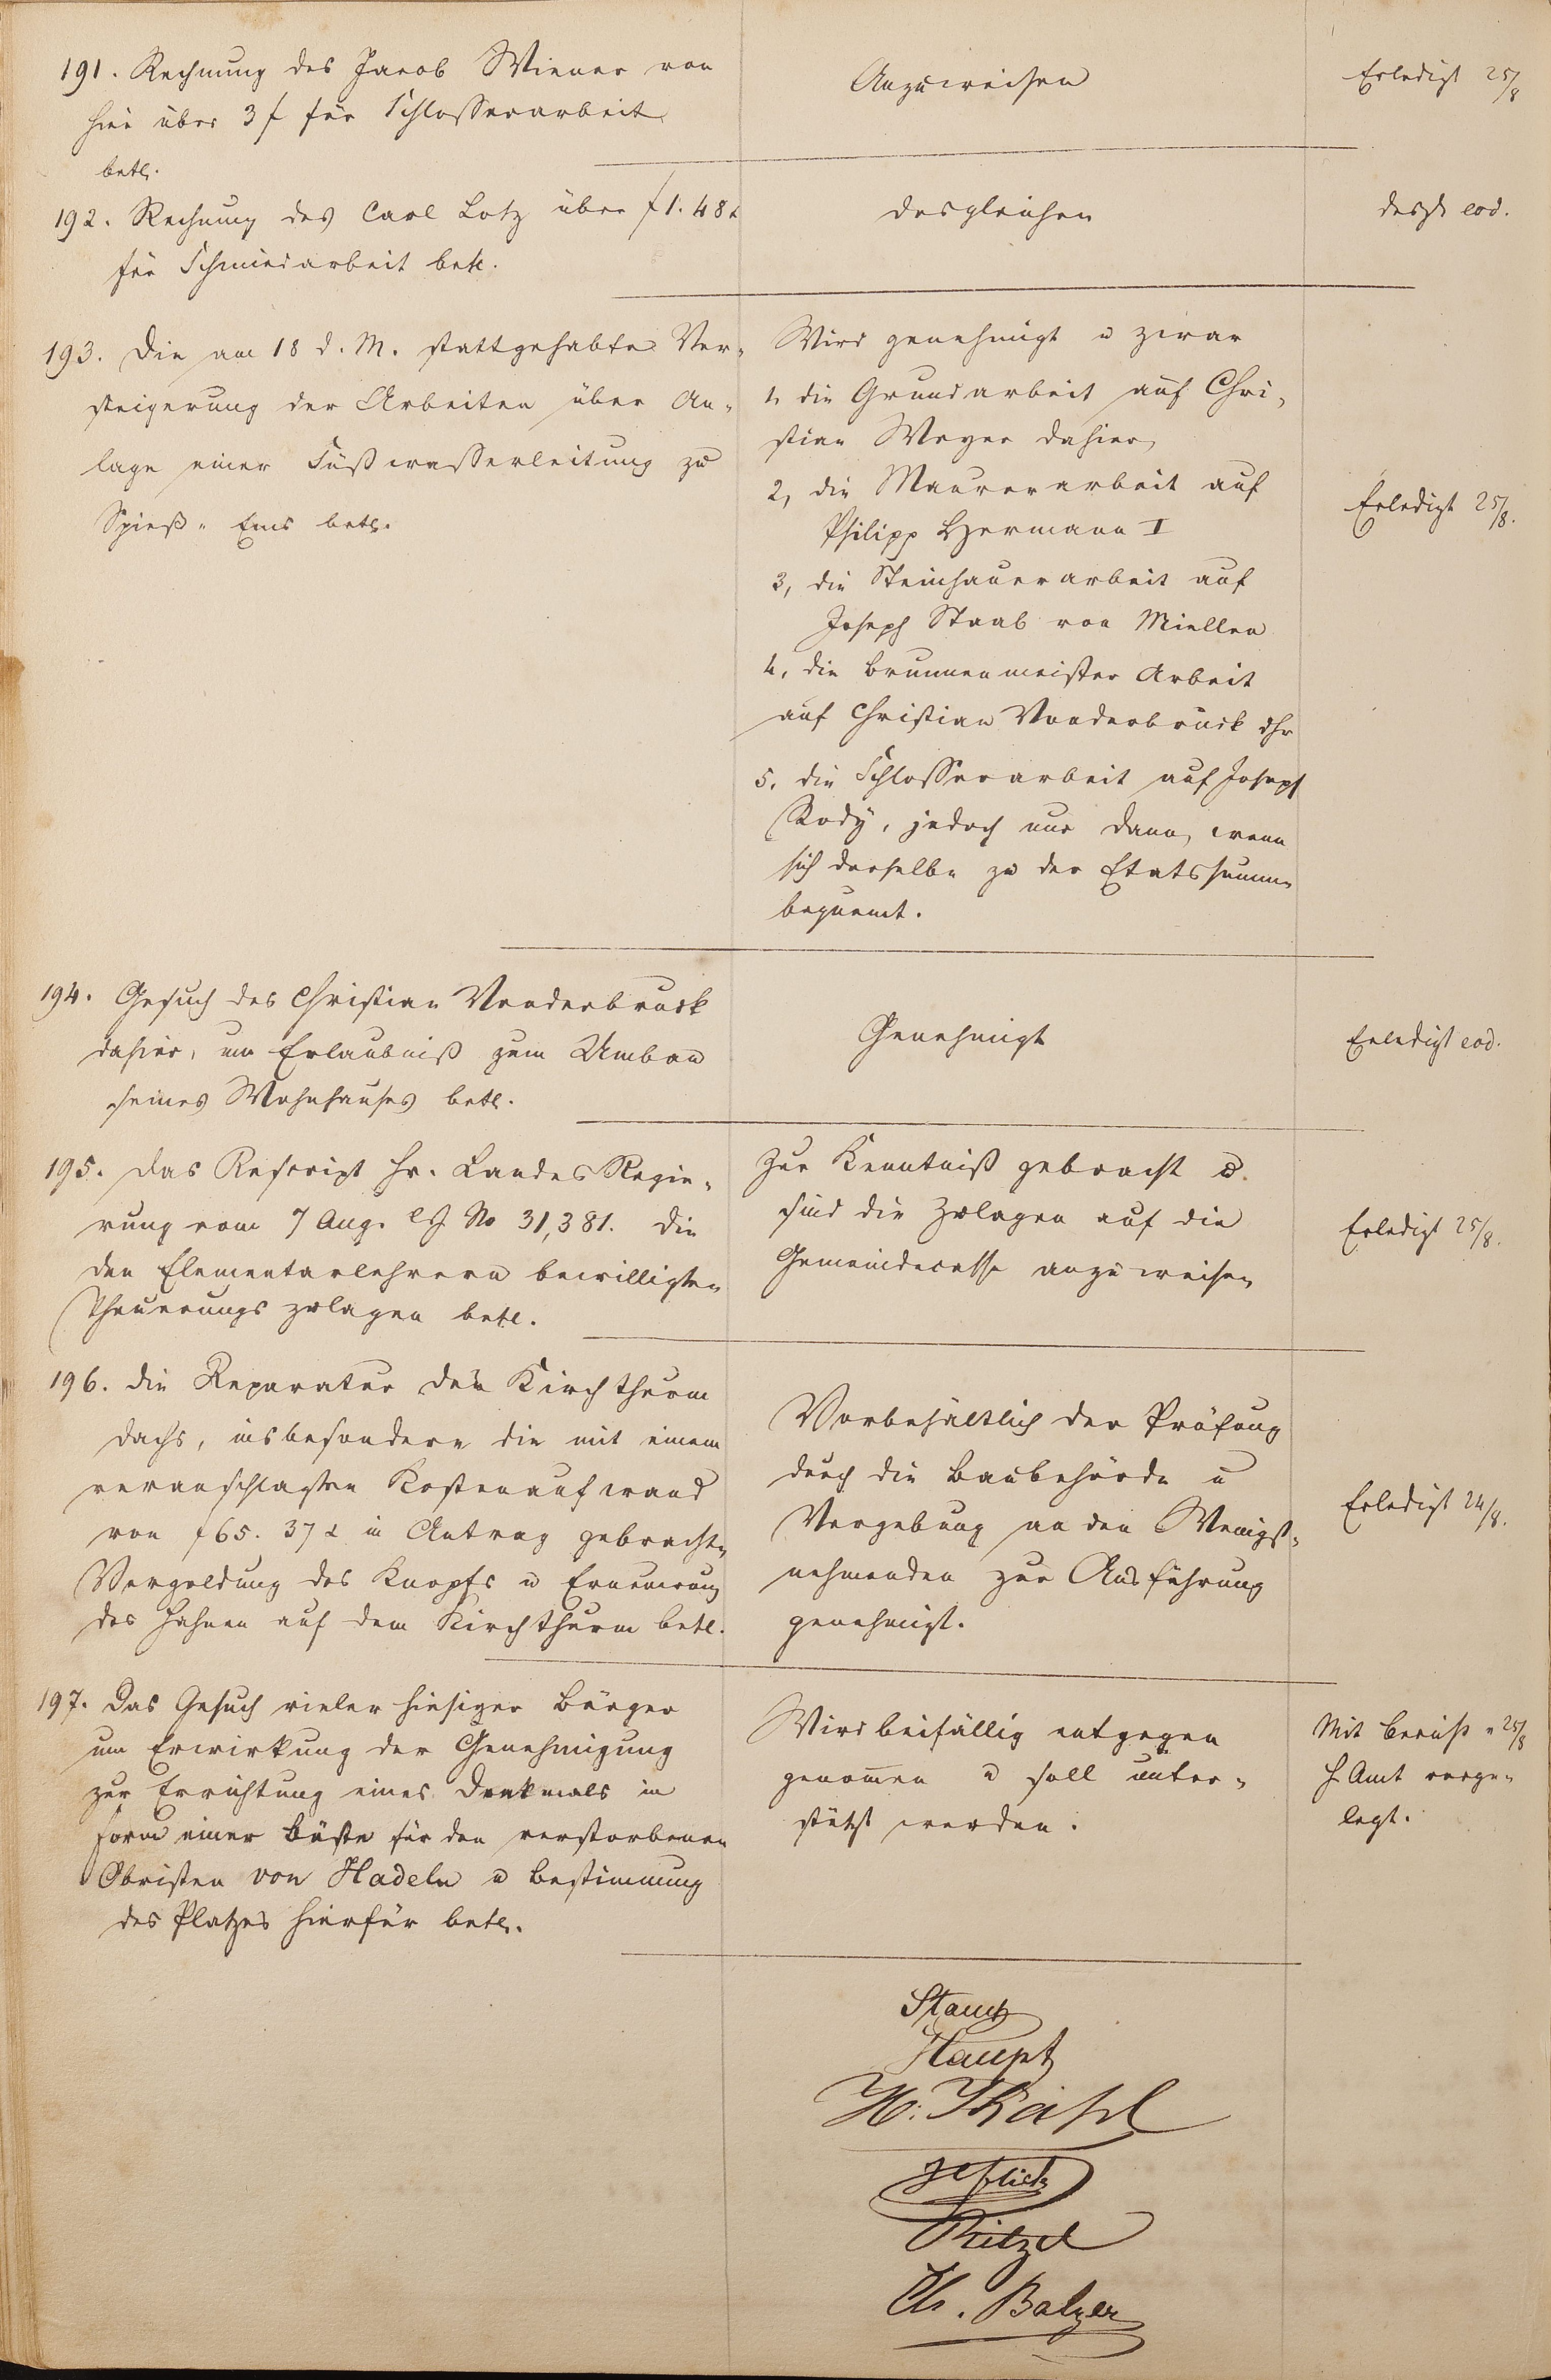 191. Rechnung des Jacob Wiener von
hier über 3 f für Schlosserarbeit
betr.
Anzuweisen
Erledigt 25/8
192. Rechnung des Carl Lotz über f 1. 48 x
für Schmiedarbeit betr.
desgleichen
desgl. eod.
193. Die am 18 d. M. stattgehabte Ver-
steigerung der Arbeiten über An-
lage einer Süßwasserleitung zu
Spieß-Ems betr.
Wird genehmigt u zwar
1, die Grundarbeit auf Chri-
stian Meyer dahier,
2, die Maurerarbeit auf
Philipp Hermann I
3, die Steinhauerarbeit auf
Joseph Staab von Miellen
4, die Brunnenmeister Arbeit
auf Christian Vonderbruck dhr
5, die Schlosserarbeit auf Joseph
Rody, jedoch nur dann, wenn
sich derselbe zu der Etatssumme
bequemt.
Erledigt 25/8.
194. Gesuch des Christian Vonderbruck
dahier, um Erlaubniß zum Umbau
seines Wohnhauses betr.
Genehmigt
Erledigt eod.
195. Das Rescript Hr. Landes Regie-
rung vom 7 Aug. l J. No 31,381. die
den Elementarlehrern bewilligten
Theuerungszulagen betr.
Zur Kenntniß gebracht u.
sind die Zulagen auf die
Gemeindecasse anzuweisen
Erledigt 25/8.
196. die Reparatur des Kirchthurm
dachs, insbesondere die mit einem
veranschlagten Kostenaufwand
von f 65. 37 x in Antrag gebrachte
Vergoldung des Knopfs u Erneuerung
des Hahnen auf dem Kirchthurm betr.
Vorbehältlich der Prüfung
durch die Baubehörde u
Vergebung an den Wenigst-
nehmenden zur Ausführung
genehmigt.
Erledigt 24/8.
197. Das Gesuch vieler hiesiger Bürger
um Erwirkung der Genehmigung
zur Errichtung eines Denkmals in
Form einer Büste für den verstorbenen
Obristen von Hadeln u Bestimmung
des Platzes hierfür betr.
Wird beifällig entgegen
genommen u soll unter-
stützt werden.
Mit Bericht v 25/8
H. Amt vorge-
legt.
Haupt
H. Thaisl
Ritzel
Ch. Balzer